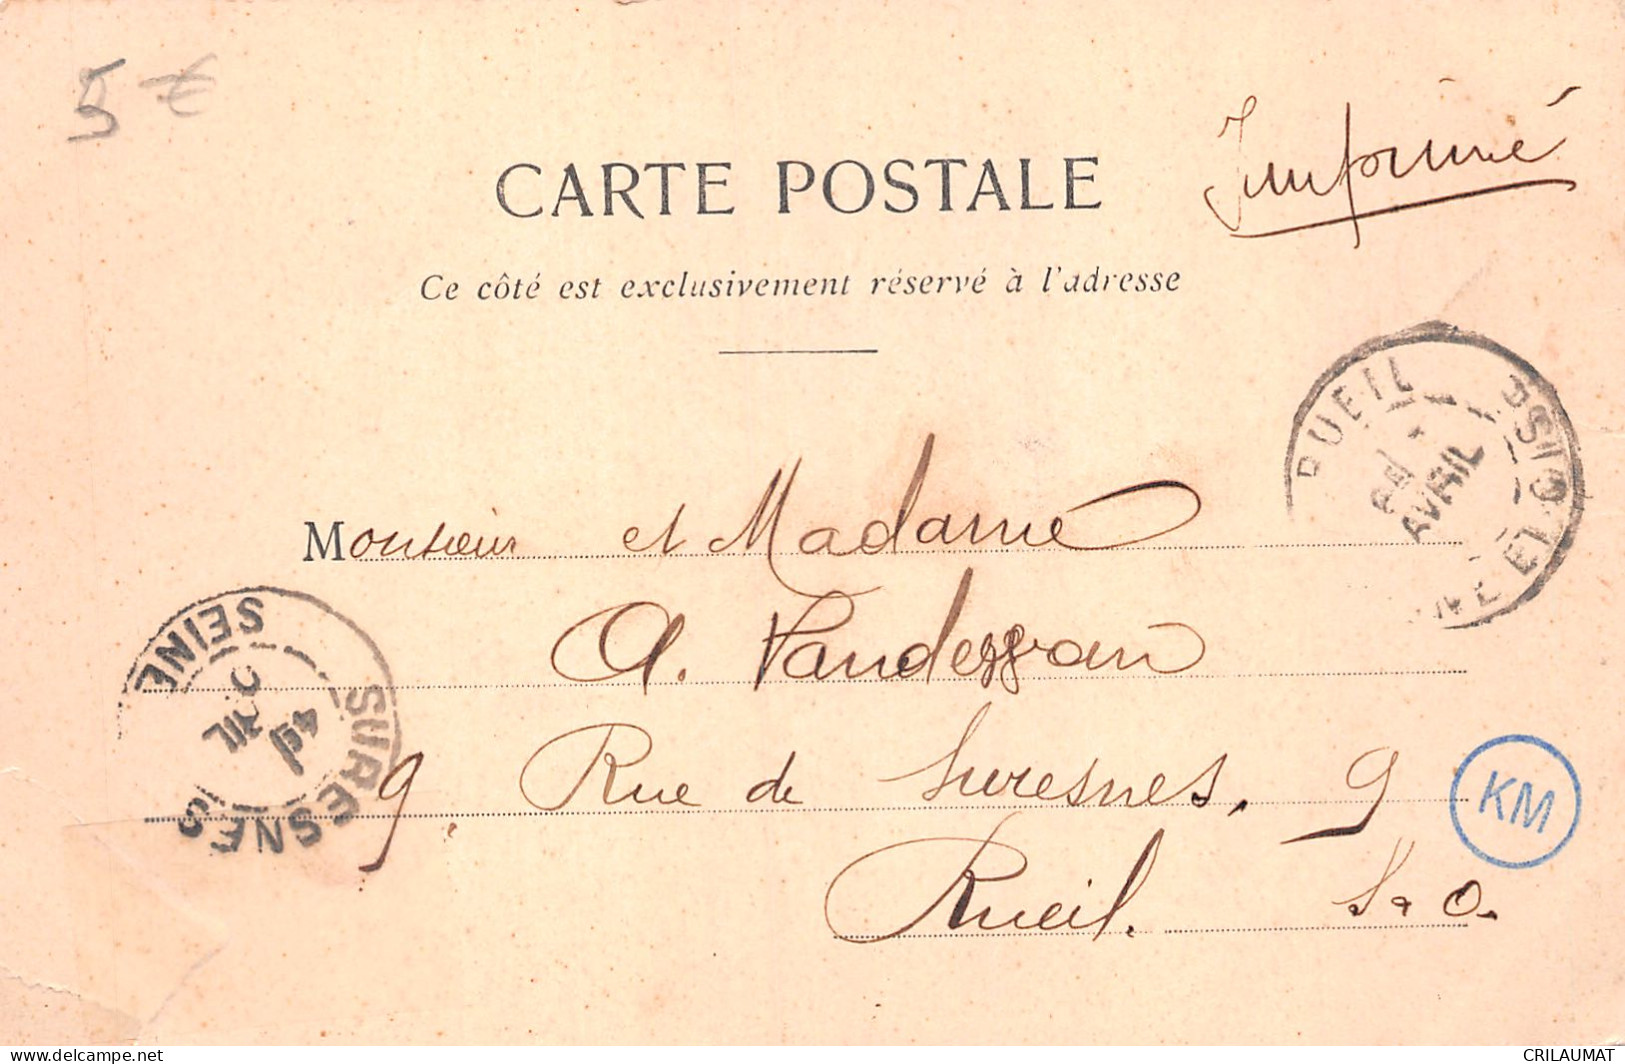 5 €
Imprimé
CARTE POSTALE
Ce côté est exclusivement réservé à l'adresse
RUEIL
AVRIL
SEINE ET OISE
Monsieur et Madame
SEINE
SURESNES
9. Rue de Suresnes, 9
KM
Rueil. S & O.
delcampe.net
CRILAUMAT